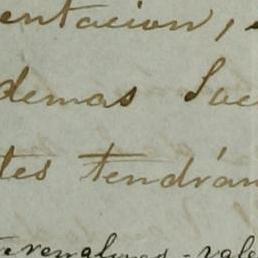 entacion,
demas Soc
tes tendrán